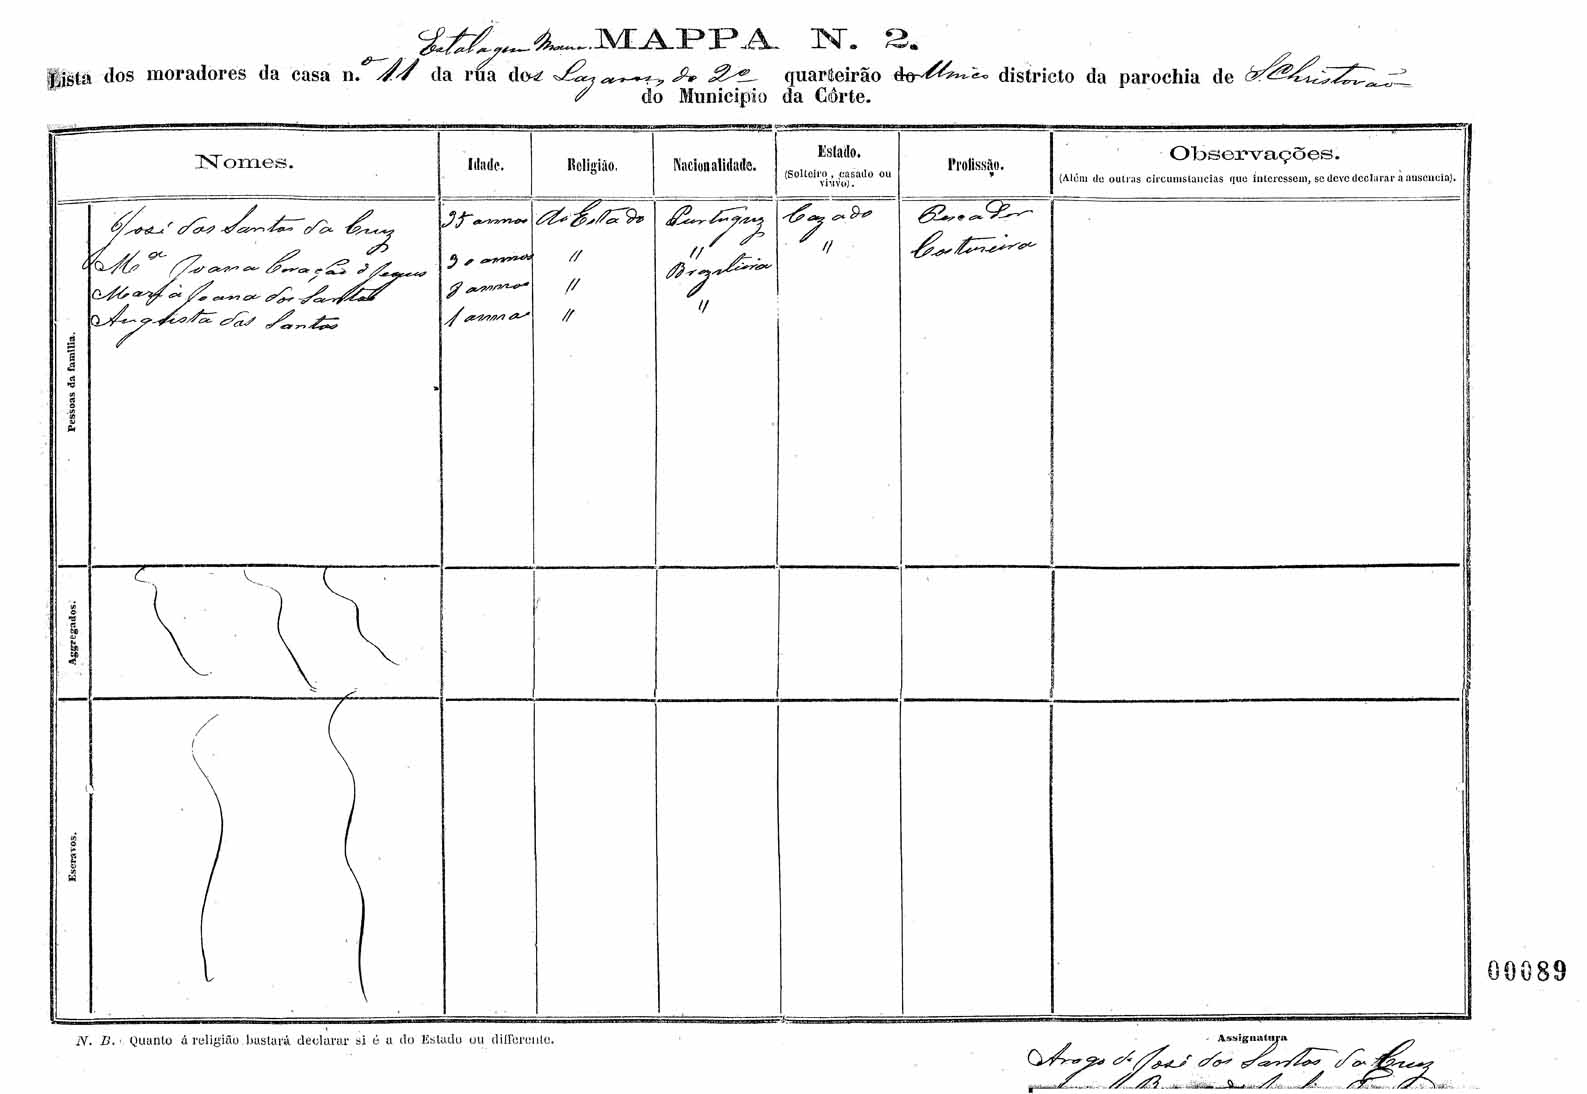 Estalagem MAPPA N. 2.
Lista dos moradores da casa n.º 11 da rua dos Lazaros do 2º quarteirão do Unico districto da parochia de S. Christovão
do Municipio da Côrte.
Nomes. Idade. Religião. Nacionalidade. Estado. Profissão. Observações.
(Solteiro, casado ou viuvo). (Além de outras circumstancias que interessem, se deve declarar à ausencia).
Pessoas da familia.
José dos Santos da Cruz 35 annos do Estado Purtuguez Cazado Pescador
Mª Joana Coração d Jezus 30 annos " " " Costureira
Maria Joana dos Santos 3 annos " Brazileira
Augusta dos Santos 1 anno " "
Aggregados.
Escravos.
00089
N. B. Quanto á religião bastará declarar si é a do Estado ou differente.
Assignatura
Arogo de José dos Santos da Cruz